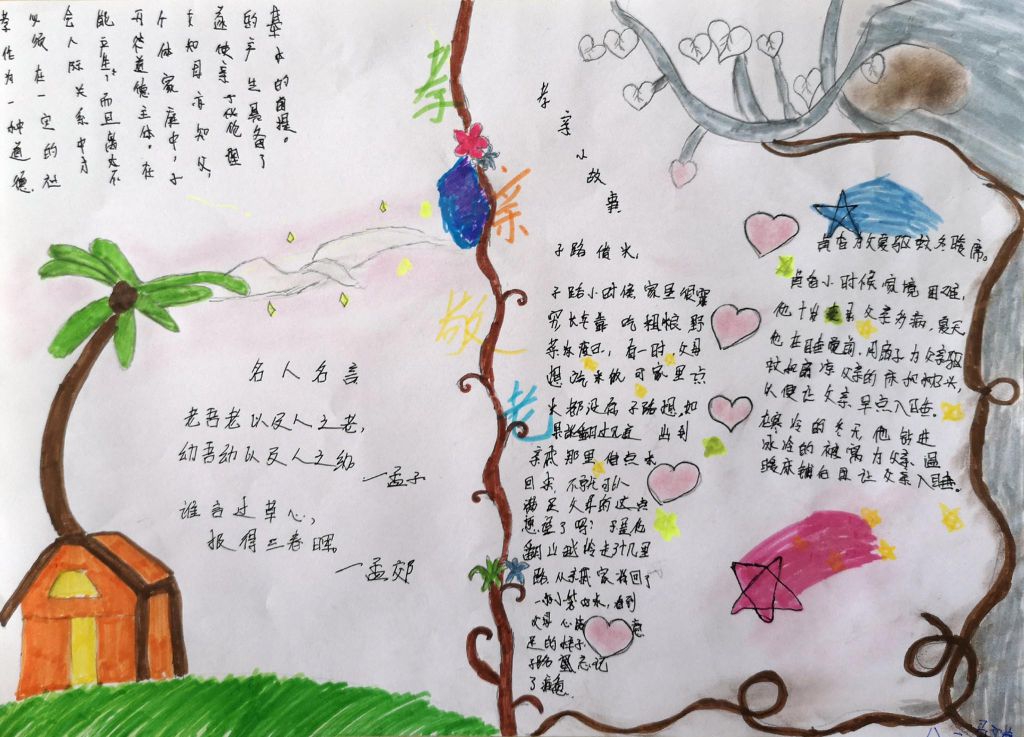 孝作为一种道德
必须在一定的社
会人际关系中才
能产生，而且离不
开从道德主体。在
个体家庭中，子
女知母亦知父，
遂使亲子伦理
的产生具备了
基本的前提。
孝
亲
敬
老
名人名言
老吾老以及人之老，
幼吾幼以及人之幼
一孟子
谁言过草心，
报得三春晖。
一孟郊
孝亲小故事
子路借米，
子路小时候家里很
穷长年靠吃粗粮野
菜等度日，有一时父母
想吃米饭可家里点
米都没有子路想，如
果翻过几道
亲戚那里借点米
回来，不就可以
满足父母的这点
想望了吗？于是他
翻山越岭走了十几里
路，从亲戚家背回了
一小袋的米，看到
父母心满意
足的样子
子路忘记
了疲惫
黄香为父爱驱蚊子暖席。
黄香小时候家境困难，
他十岁父亲多病，夏天
他在睡觉前，用扇子为父亲驱
蚊扇凉父亲的床和枕头，
以便让父亲早点入睡。
在寒冷的冬天他钻进
冰冷的被窝为父亲温
暖床铺自己让父亲入睡。